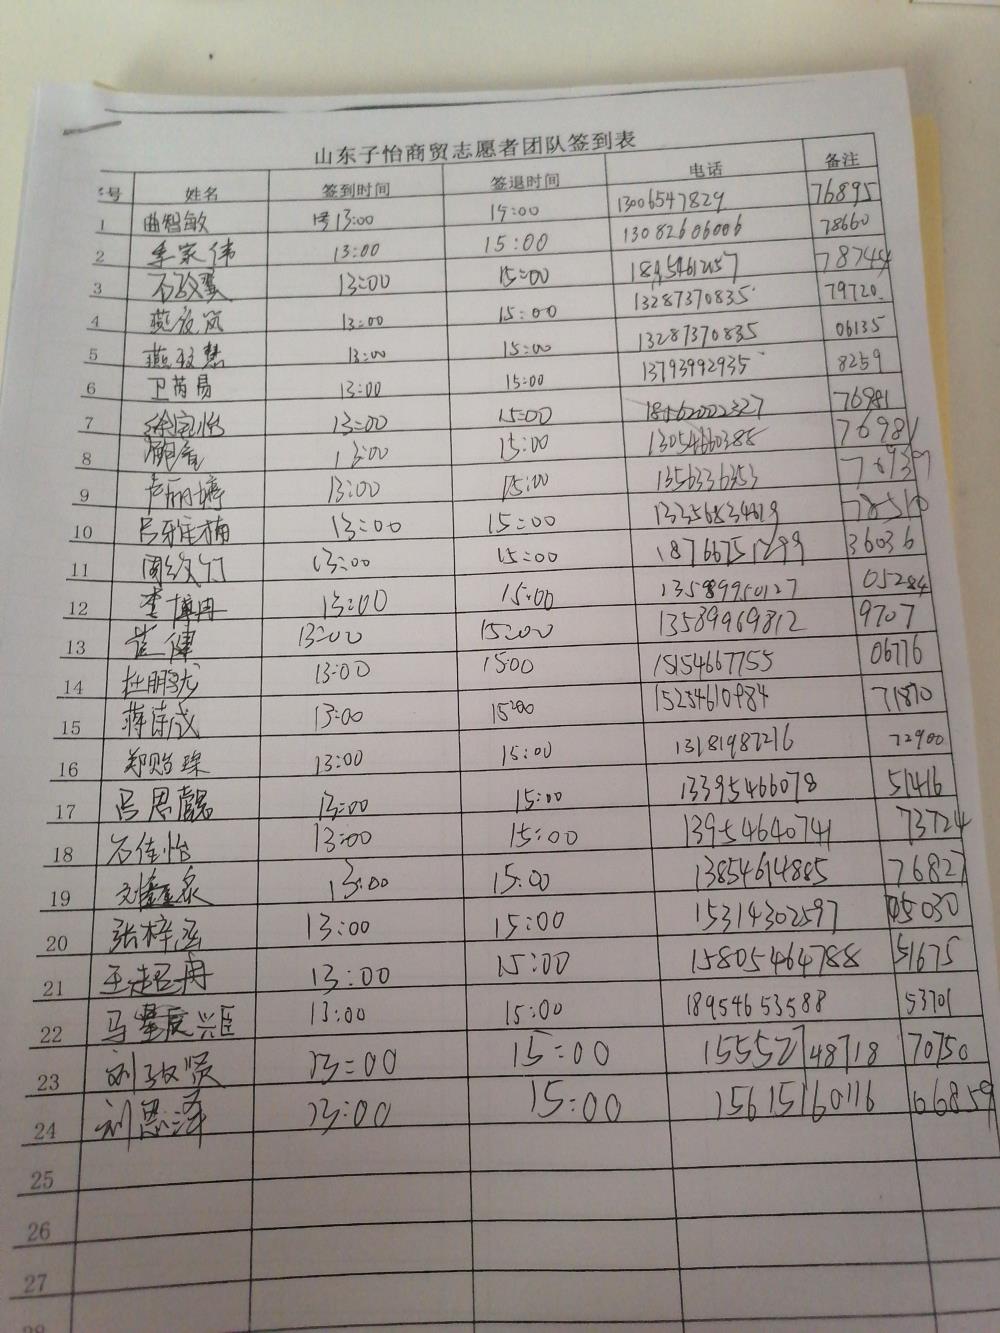 山东子怡商贸志愿者团队签到表
号 姓名 签到时间 签退时间 电话 备注
1 曲智敏 13:00 15:00 13006547829 76895
2 李家伟 13:00 15:00 13082606006 78660
3 13:00 15:00 78745
4 13:00 15:00 13287370835 79720
5 燕敏慧 13:00 15:00 13287370835 06135
6 卫芮易 13:00 15:00 13793992935 8259
7 徐宛怡 13:00 15:00 18562002327 76981
8 13:00 15:00 13054660388 76981
9 卢丽婷 13:00 15:00 1356336353
10 吕雅楠 13:00 15:00 78510
11 周纹仃 13:00 15:00 18766751299 36036
12 李博冉 13:00 15:00 135899950127 05284
13 崔健 13:00 15:00 13589969812 9707
14 杜鹏龙 13:00 15:00 15154667755 06776
15 蒋诗成 13:00 15:00 15254610984 71870
16 郑贻璨 13:00 15:00 13181987216 72900
17 吕思 13:00 15:00 13395466078 51416
18 石佳怡 13:00 15:00 13954640741 73724
19 刘鑫泉 13:00 15:00 13854614885 76827
20 张梓涵 13:00 15:00 15314302597 05030
21 王超冉 13:00 15:00 15805464788 51675
22 马 13:00 15:00 18954653588 53701
23 刘政贤 13:00 15:00 15552748718 70750
24 刘恩泽 13:00 15:00 15615160116 06859
25
26
27
28